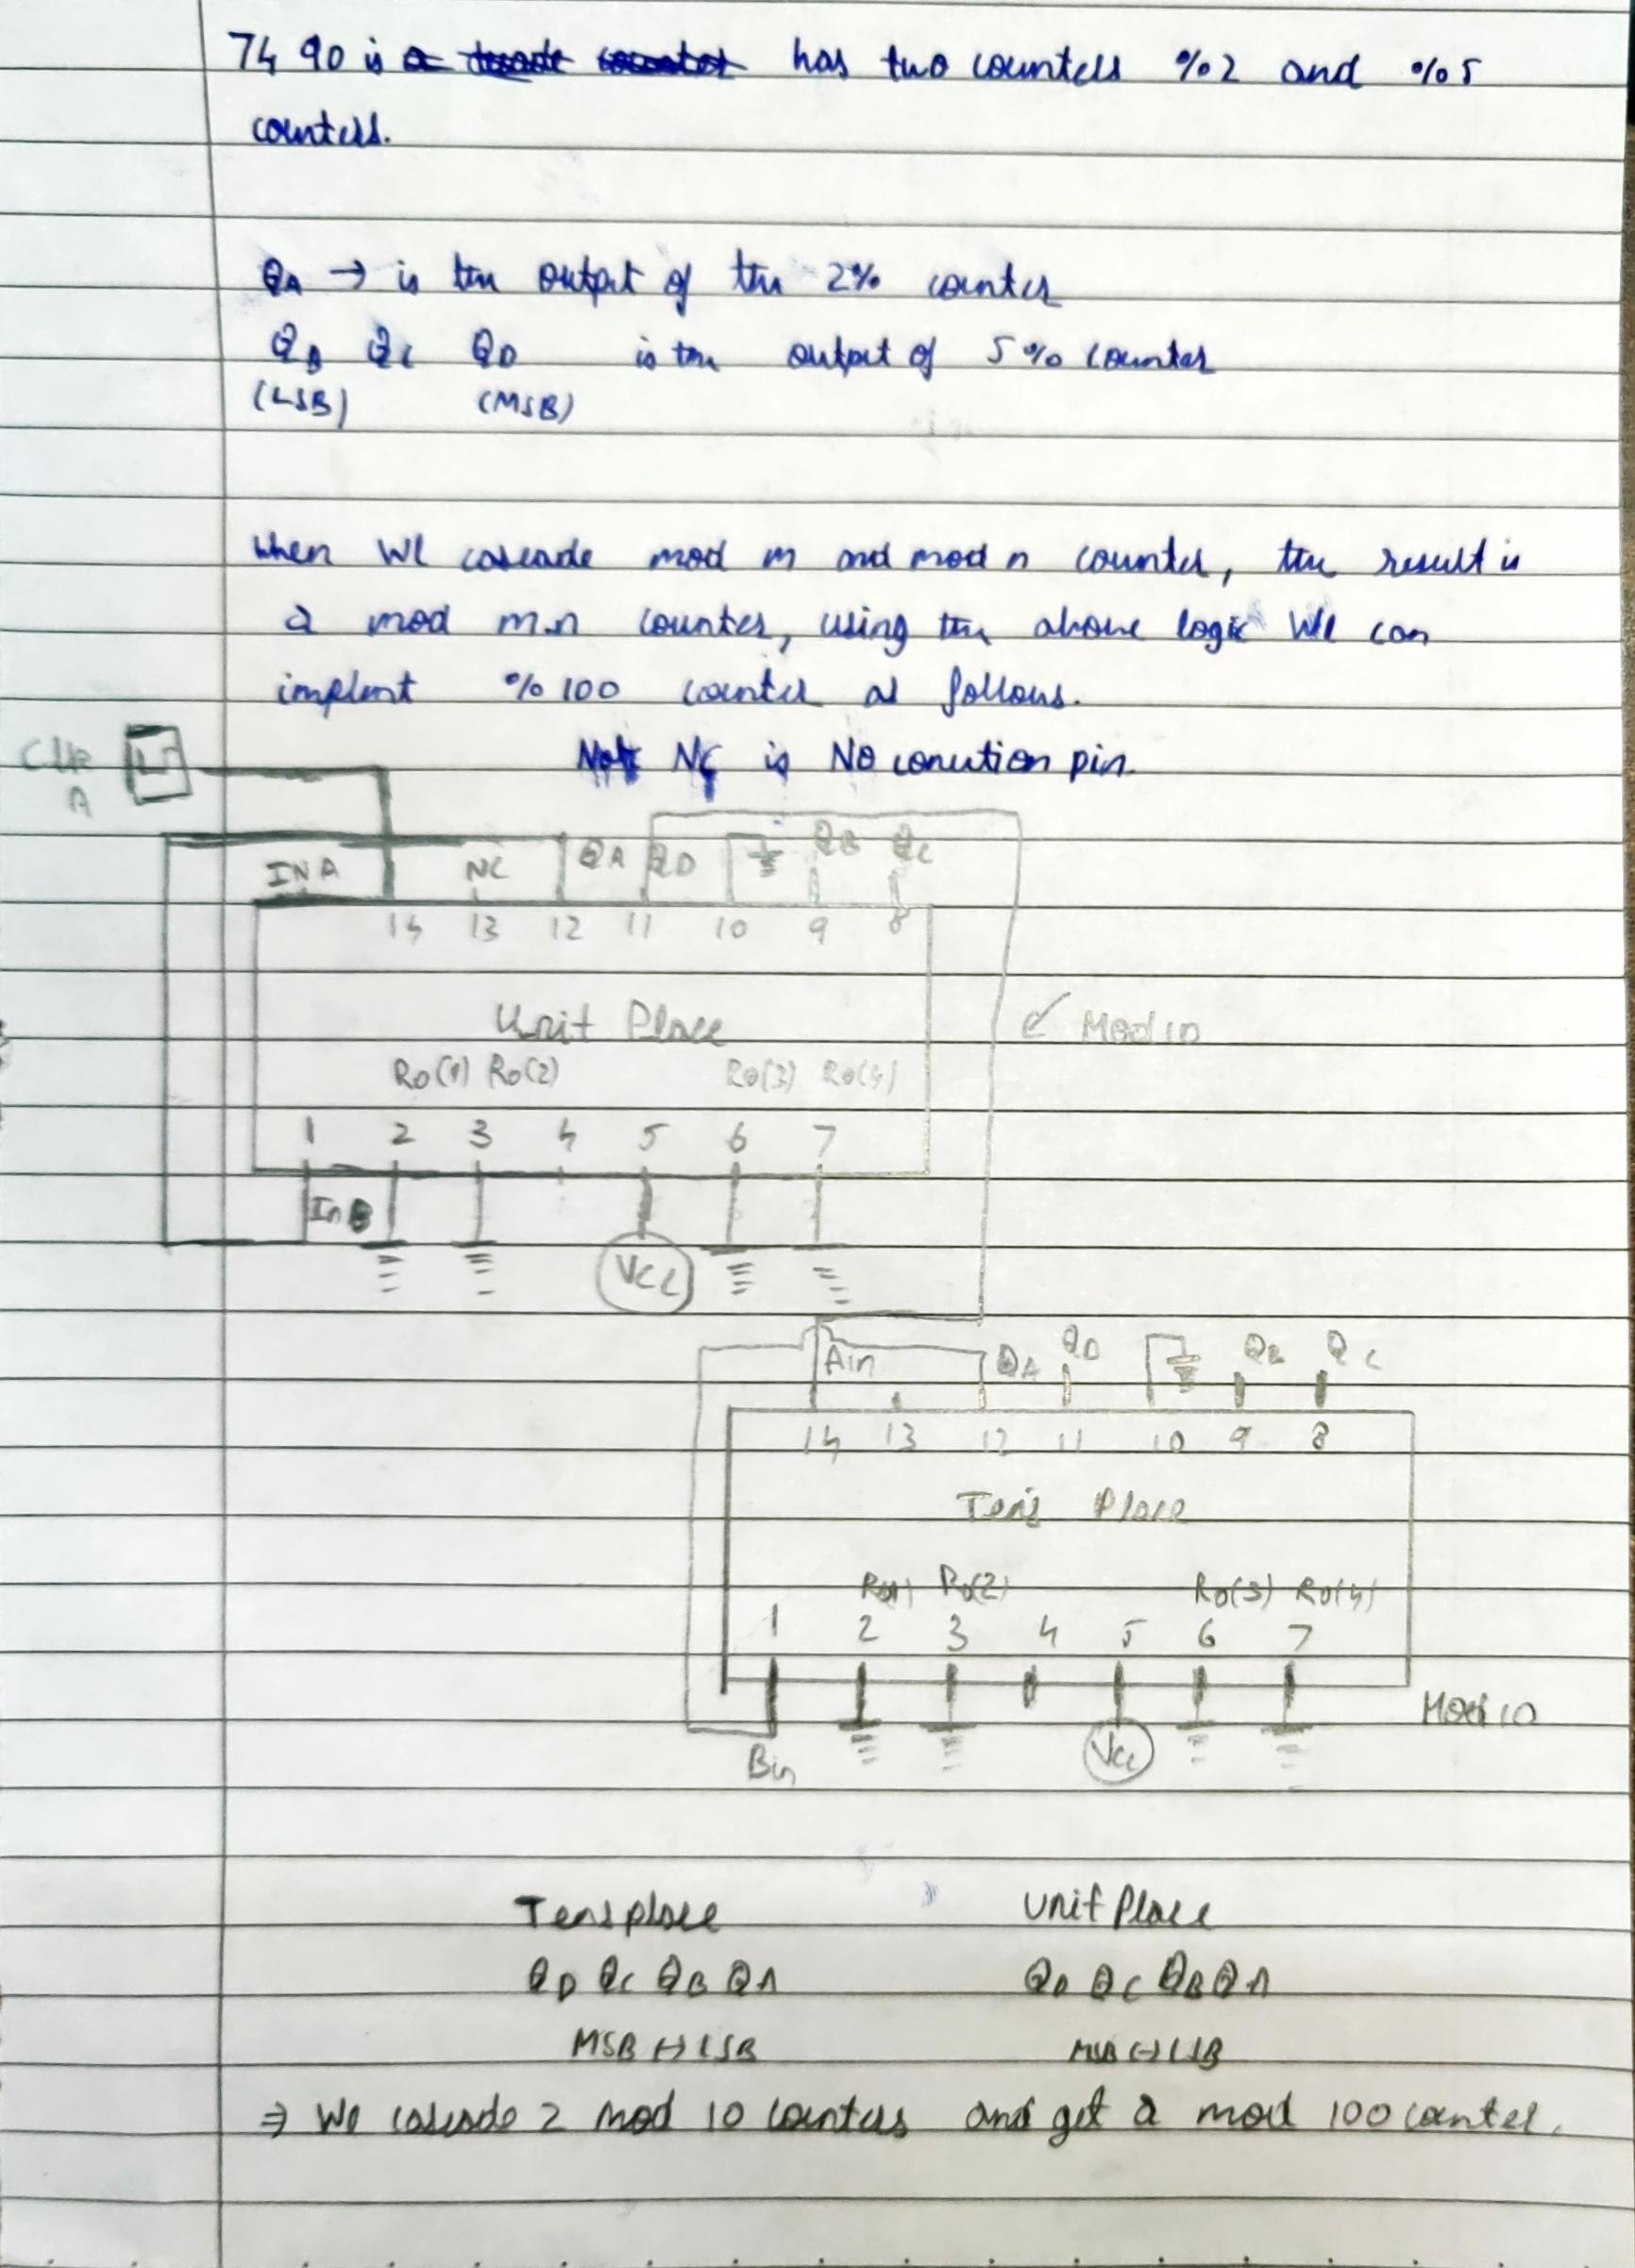 7490 is a decade counter has two counters %2 and %5
counters.
QA → is the output of the 2% counter
QB QC QD is the output of 5% counter
(LSB) (MSB)
When we cascade mod m and mod n counter, the result is
a mod m.n counter, using the above logic we can
implent % 100 counter as follows.
Note NC is No conution pin.
Clk
A
INA NC QA QD QB QC
14 13 12 11 10 9 8
Unit Place
Mod 10
R0(1) R0(2) R0(3) R0(4)
1 2 3 4 5 6 7
InB
VCC
Ain QA QD QB QC
14 13 12 11 10 9 8
Tens Place
R0(1) R0(2) R0(3) R0(4)
1 2 3 4 5 6 7
Mod 10
Bin
VCC
Tens place Unit Place
QD QC QB QA QD QC QB QA
MSB ↔ LSB MSB ↔ LSB
⇒ We cascade 2 mod 10 counters and get a mod 100 counter.